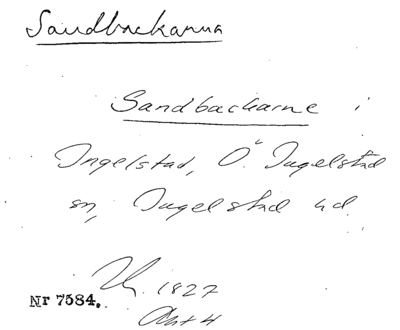 Sandbackarna
Sandbackarne i
Ingelstad, Ö. Ingelstad
sn, Ingelstad hd.
1827
Nr 7584.
Akt 4